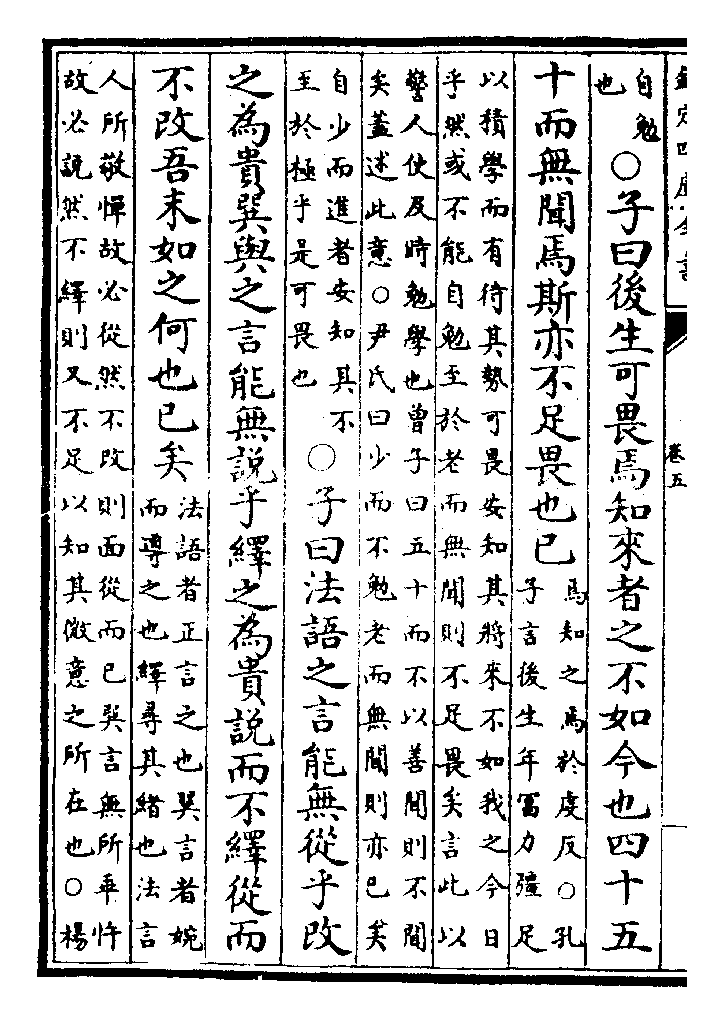 欽定四庫全書
卷五
自勉
也
○子曰後生可畏焉知來者之不如今也四十五
十而無聞焉斯亦不足畏也已
焉知之焉於虔反○孔
子言後生年富力彊足
以積學而有待其勢可畏安知其將來不如我之今日
乎然或不能自勉至於老而無聞則不足畏矣言此以
警人使及時勉學也曾子曰五十而不以善聞則不聞
矣蓋述此意○尹氏曰少而不勉老而無聞則亦已矣
自少而進者安知其不
至於極乎是可畏也
○子曰法語之言能無從乎改
之為貴巽與之言能無說乎繹之為貴說而不繹從而
不改吾末如之何也已矣
法語者正言之也巽言者婉
而導之也繹尋其緒也法言
人所敬憚故必從然不改則面從而已巽言無所乖忤
故必說然不繹則又不足以知其微意之所在也○楊